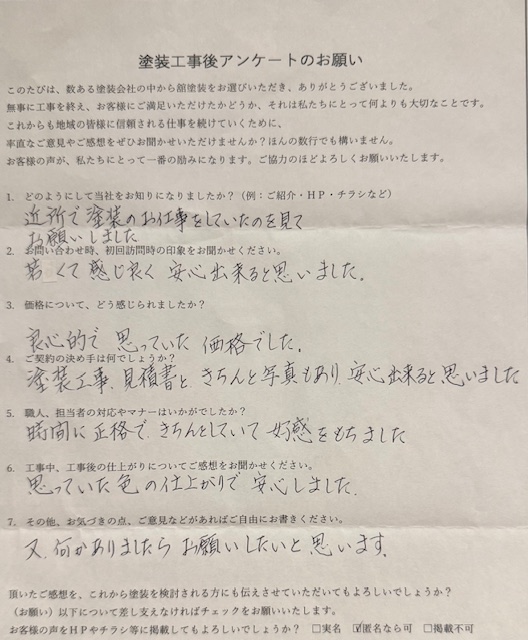 塗装工事後アンケートのお願い
このたびは、数ある塗装会社の中から舘塗装をお選びいただき、ありがとうございました。
無事に工事を終え、お客様にご満足いただけたかどうか、それは私たちにとって何よりも大切なことです。
これからも地域の皆様に信頼される仕事を続けていくために、
率直なご意見やご感想をぜひお聞かせいただけますか？ほんの数行でも構いません。
お客様の声が、私たちにとって一番の励みになります。ご協力のほどよろしくお願いいたします。
1. どのようにして当社をお知りになりましたか？（例：ご紹介・HP・チラシなど）
近所で塗装のお仕事をしていたのを見て
お願いしました
2. お問い合わせ時、初回訪問時の印象をお聞かせください。
若くて感じ良く 安心出来ると思いました。
3. 価格について、どう感じられましたか？
良心的で 思っていた 価格でした。
4. ご契約の決め手は何でしょうか？
塗装工事、見積書と、きちんと写真もあり、安心出来ると思いました
5. 職人、担当者の対応やマナーはいかがでしたか？
時間に正格で、きちんとしていて 好感をもちました
6. 工事中、工事後の仕上がりについてご感想をお聞かせください。
思っていた色の仕上がりで 安心しました。
7. その他、お気づきの点、ご意見などがあればご自由にお書きください。
又、何かありましたらお願いしたいと思います。
頂いたご感想を、これから塗装を検討される方にも伝えさせていただいてもよろしいでしょうか？
（お願い）以下について差し支えなければチェックをお願いいたします。
お客様の声をHPやチラシ等に掲載してもよろしいでしょうか？ □実名 ☑匿名なら可 □掲載不可